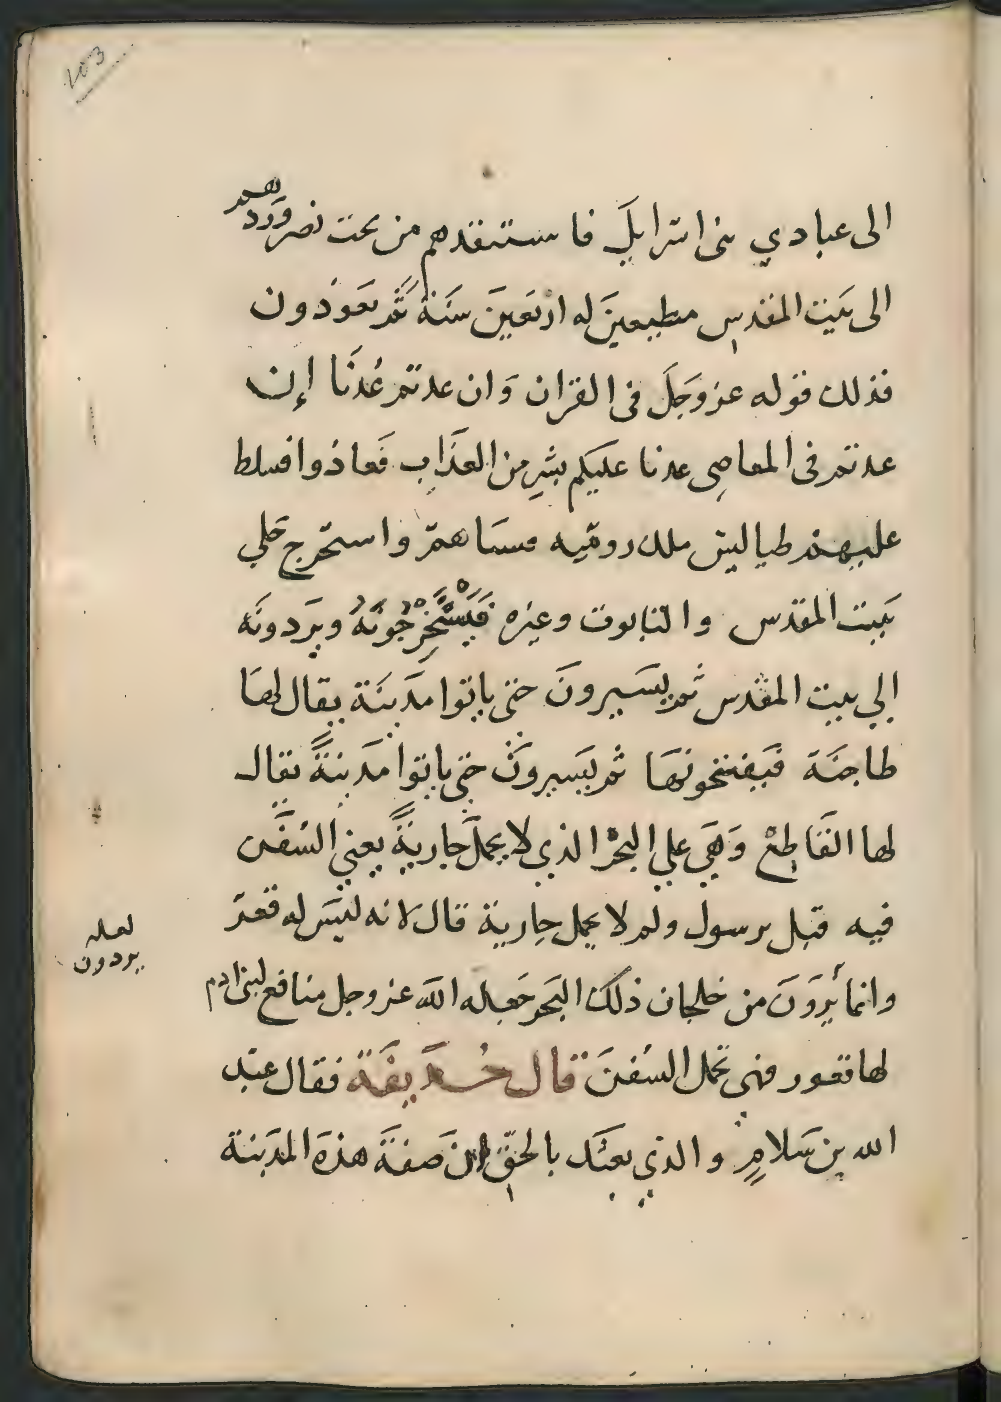 103
الى عبادي بنى اسرايل فاستنقدهم من بخت نصر وردهم
الى بيت المقدس مطيعين له اربعين سنة ثم يعودون
فذلك قوله عز وجل فى القران وان عدتم عدنا إن
عدتم فى المعاصى عدنا عليكم بشر من العذاب فعادوا فسلط
عليهم طياليس ملك رومية فسباهم واستخرج حلي
بيت المقدس والتابوت وغيره فيستخرجونه ويردونه
إلي بيت المقدس ثم يسيرون حتى ياتوا مدينة يقال لها
طاجنة فيفتتحونها ثم يسيرون حتي ياتوا مدينة يقال
لها القاطع وهي علي البحر الذي لا يحمل جارية يعني السفن
فيه قيل يرسول ولم لا يحمل جارية قال لانه ليس له قعر
وانما يرون من خلجان ذلك البحر جعله الله عز وجل منافع لبنى ادم
لها قعور فهى تحمل السفن قال حذيفة فقال عبد
الله بن سلام والذي بعثك بالحق ان صفة هذه المدينة
لعله
يردون